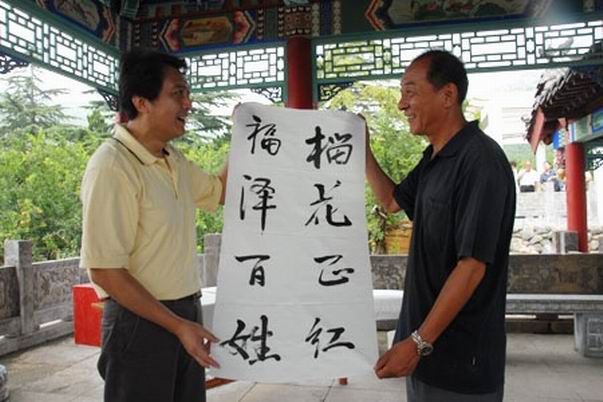 榴花正红
福泽百姓